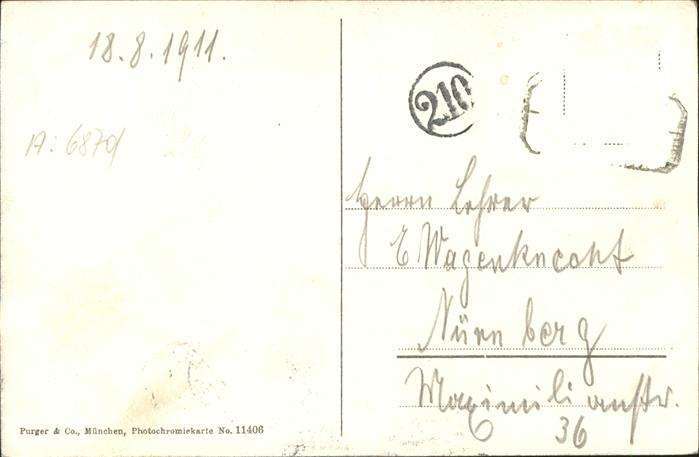 18.8.1911.
A: 6870
210
Herrn Lehrer
E Wagenknecht
Nürnberg
Maximilianstr.
36
Purger & Co., München, Photochromiekarte No. 11406